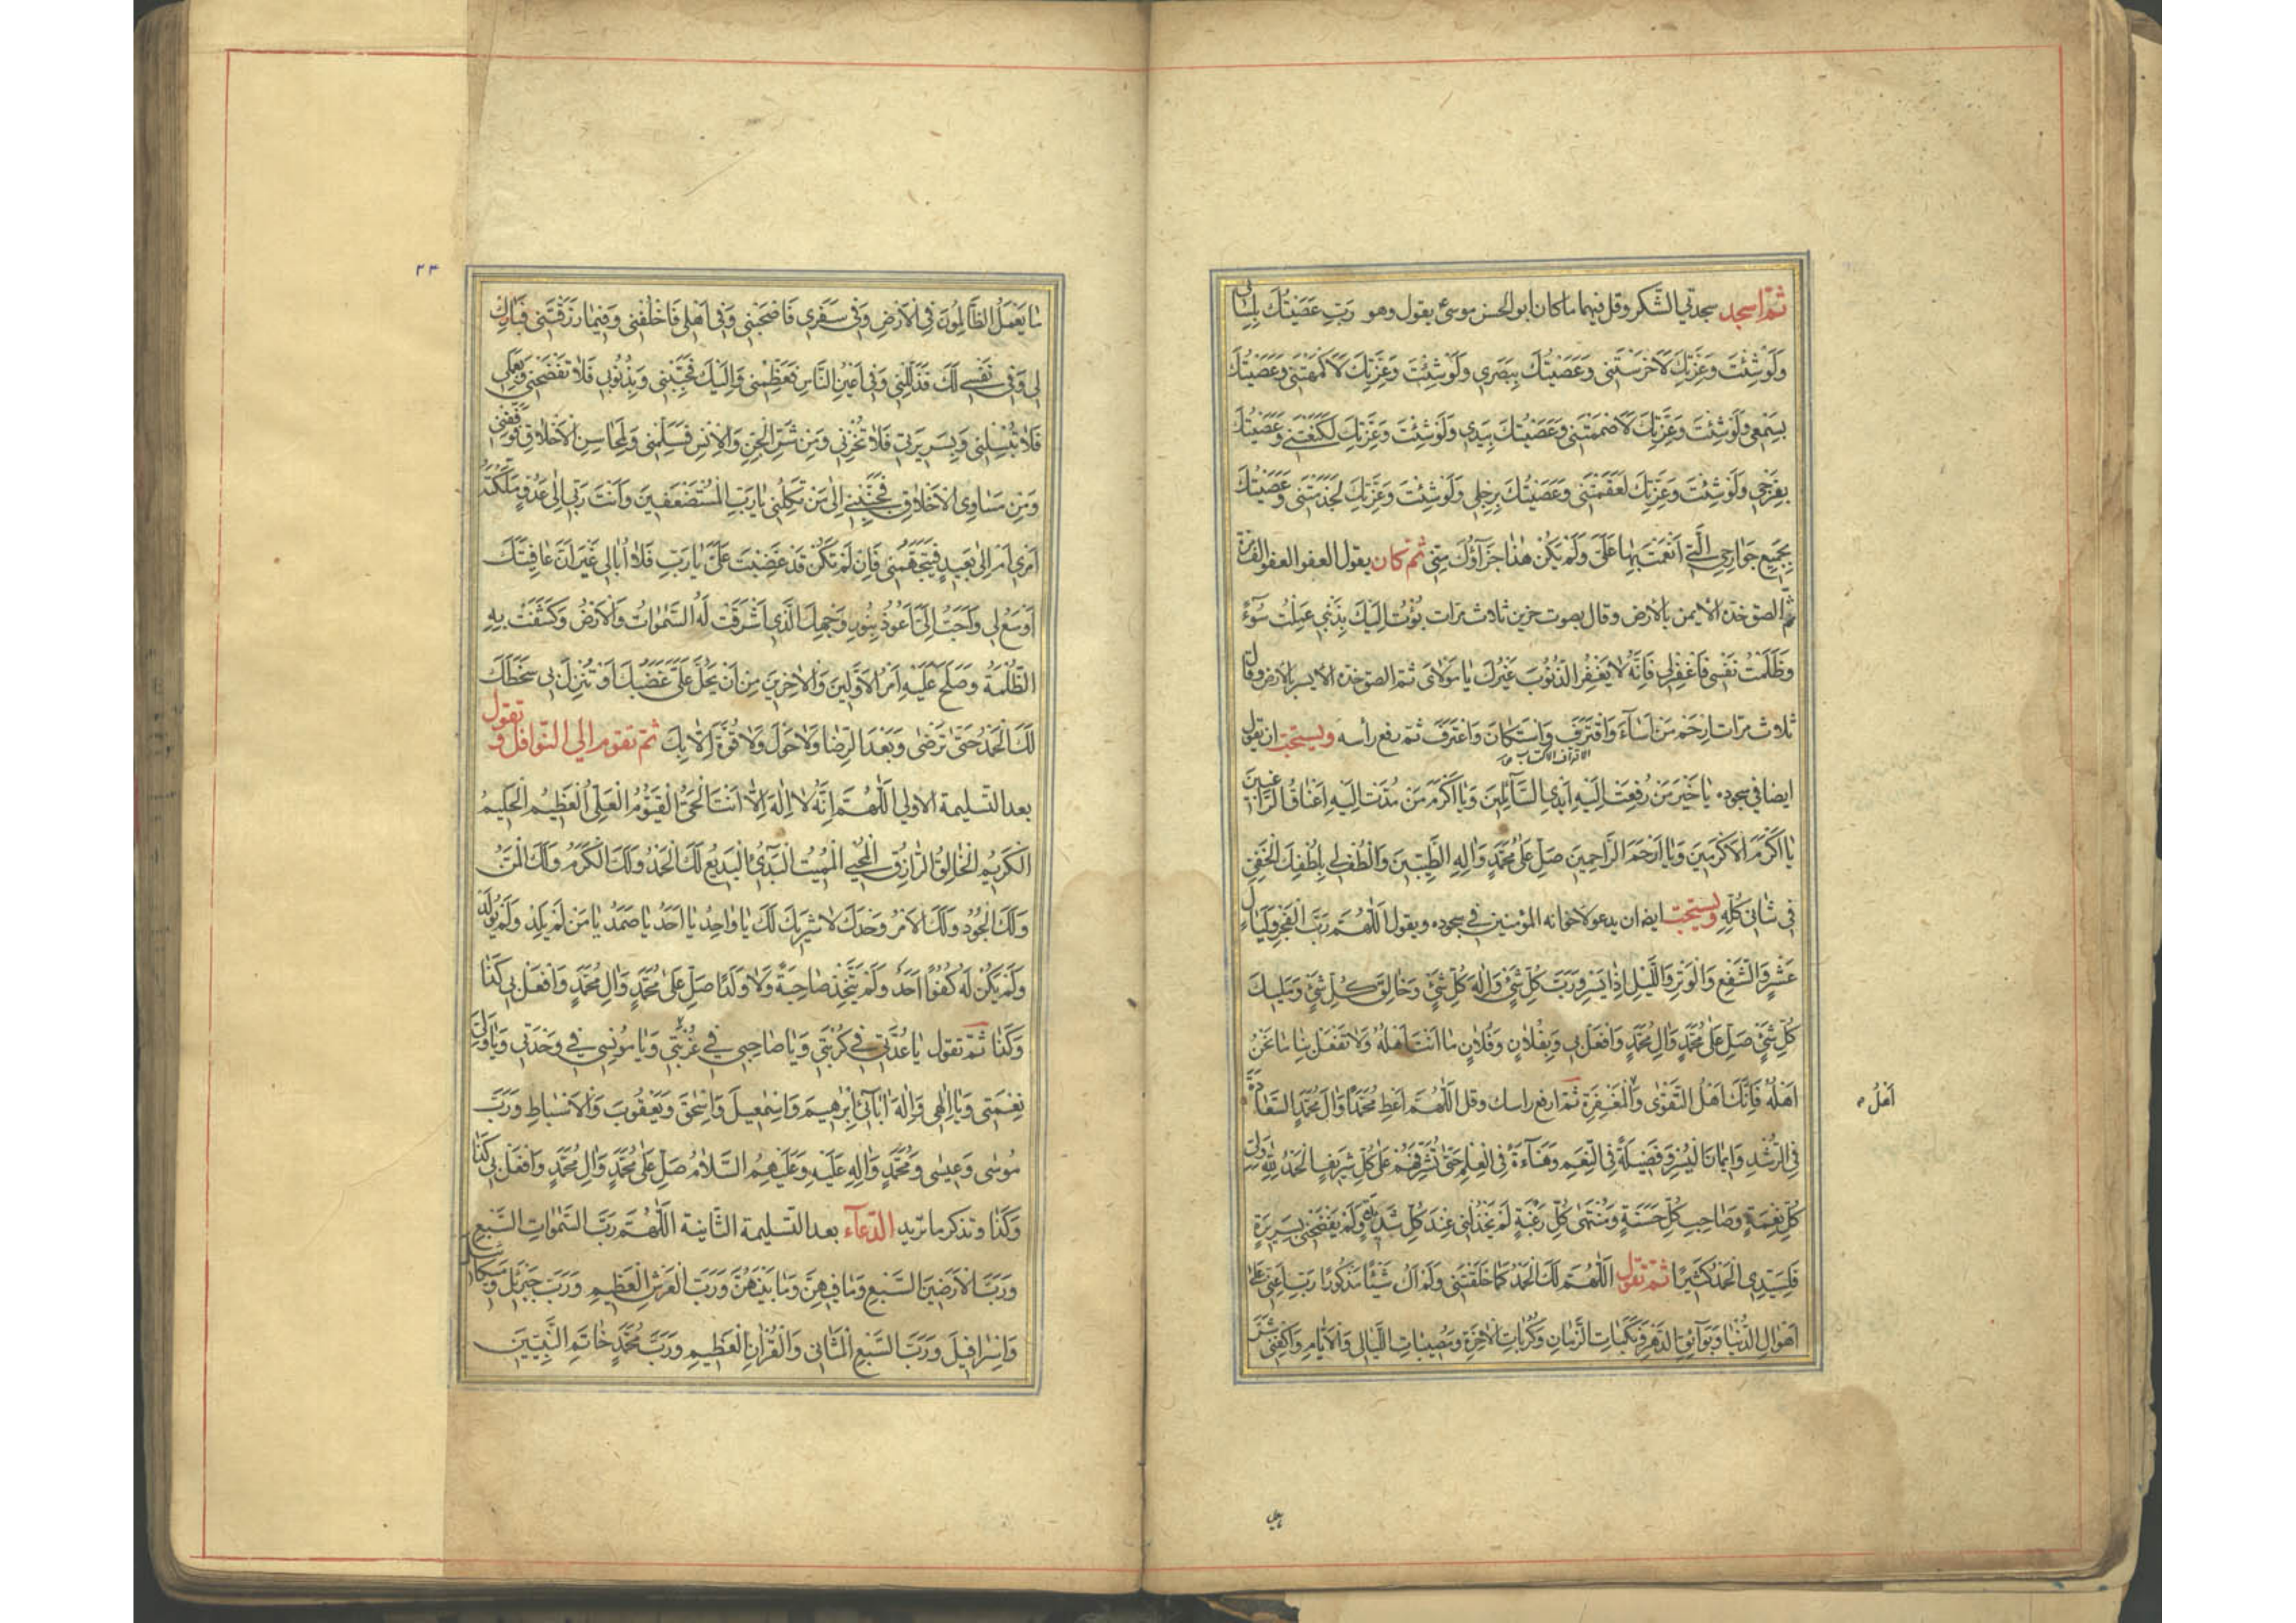 ثم اسجد سجدتي الشكر وقل فيهما ما كان ابو الحسن موسى ع يقول وهو رَبِّ عَصَيْتُكَ بِلِسٰانى
وَلَوْ شِئْتَ وَعِزَّتِكَ لَاَخْرَسْتَنى وَعَصَيْتُكَ بِبَصَرِى وَلَوْ شِئْتَ وَعِزَّتِكَ لَاَكْمَهْتَنى وَعَصَيْتُكَ
بِسَمْعى وَلَوْ شِئْتَ وَعِزَّتِكَ لَاَصْمَمْتَنى وَعَصَيْتُكَ بِيَدى وَلَوْ شِئْتَ وَعِزَّتِكَ لَكَنَّعْتَنى وَعَصَيْتُكَ
بِفَرْجى وَلَوْ شِئْتَ وَعِزَّتِكَ لَعَقَمْتَنى وَعَصَيْتُكَ بِرِجْلى وَلَوْ شِئْتَ وَعِزَّتِكَ لَجَذَمْتَنى وَعَصَيْتُكَ
بِجَميعِ جَوٰارِحِىَ الَّتى اَنْعَمْتَ بِهٰا عَلَىَّ وَلَمْ يَكُنْ هٰذٰا جَزٰآؤُكَ مِنّى ثم كان يقول العفو العفو الف مرة
ثم الصق خده الايمن بالارض وقال بصوت حزين ثلاث مرات بُؤْتُ اِلَيْكَ بِذَنْبى عَمِلْتُ سُوٓءً
وَظَلَمْتُ نَفْسى فَاغْفِرْ لى فَاِنَّهُ لٰا يَغْفِرُ الذُّنُوبَ غَيْرُكَ يٰا مَوْلٰاىَ ثم الصق خده الايسر بالارض وقال
ثلاث مرات اِرْحَمْ مَنْ اَسٰآءَ وَاقْتَرَفَ وَاسْتَكٰانَ وَاعْتَرَفَ ثم رفع رأسه ويستحب ان يقول
الاقتراف الاكتساب
ايضا فى سجوده يٰا خَيْرَ مَنْ رُفِعَتْ اِلَيْهِ اَيْدِى السّٰآئِلينَ وَيٰا اَكْرَمَ مَنْ مُدَّتْ اِلَيْهِ اَعْنٰاقُ الرّٰاغِبينَ
يٰا اَكْرَمَ الْاَكْرَمينَ وَيٰا اَرْحَمَ الرّٰاحِمينَ صَلِّ عَلىٰ مُحَمَّدٍ وَاٰلِهِ الطَّيِّبينَ وَالْطُفْ لى بِلُطْفِكَ الْخَفِىِّ
فى شَانى كُلِّهِ ويستحب ايضا ان يدعو لاخوانه المؤمنين فى سجوده ويقول اَللّٰهُمَّ رَبَّ الْفَجْرِ وَلَيٰالٍ
عَشْرٍ وَالشَّفْعِ وَالْوَتْرِ وَاللَّيْلِ اِذٰا يَسْرِ وَرَبَّ كُلِّ شَىْءٍ وَاِلٰهَ كُلِّ شَىْءٍ وَخٰالِقَ كُلِّ شَىْءٍ وَمَليكَ
كُلِّ شَىْءٍ صَلِّ عَلىٰ مُحَمَّدٍ وَاٰلِ مُحَمَّدٍ وَافْعَلْ بى وَبِفُلٰانٍ وَفُلٰانٍ مٰا اَنْتَ اَهْلُهُ وَلٰا تَفْعَلْ بِنٰا مٰا نَحْنُ
اَهْلُهُ فَاِنَّكَ اَهْلُ التَّقْوىٰ وَالْمَغْفِرَةِ ثم ارفع راسك وقل اَللّٰهُمَّ اَعْطِ مُحَمَّدًا وَاٰلَ مُحَمَّدٍ السَّعٰادَةَ
اَهْلُ
فِى الرُّشْدِ وَايمٰانَ الْيُسْرِ وَفَضيلَةً فِى النِّعَمِ وَهَنٰآءَةً فِى الْعِلْمِ حَتّىٰ تُشَرِّفَهُمْ عَلىٰ كُلِّ شَريفٍ اَلْحَمْدُ لِلّٰهِ وَلِىِّ
كُلِّ نِعْمَةٍ وَصٰاحِبِ كُلِّ حَسَنَةٍ وَمُنْتَهىٰ كُلِّ رَغْبَةٍ لَمْ يَخْذُلْنى عِنْدَ كُلِّ شَديدَةٍ وَلَمْ يَفْضَحْنى بِسَريرَةٍ
فَلِسَيِّدِى الْحَمْدُ كَثيرًا ثم تقول اَللّٰهُمَّ لَكَ الْحَمْدُ كَمٰا خَلَقْتَنى وَلَمْ اَكُ شَيْئًا مَذْكُورًا رَبِّ اَعِنّى عَلىٰ
اَهْوٰالِ الدُّنْيٰا وَبَوٰآئِقِ الدَّهْرِ وَنَكَبٰاتِ الزَّمٰانِ وَكُرُبٰاتِ الْاٰخِرَةِ وَمُصيبٰاتِ اللَّيٰالى وَالْاَيّٰامِ وَاكْفِنى شَرَّ
٢٣
مٰا يَعْمَلُ الظّٰالِمُونَ فِى الْاَرْضِ وَفى سَفَرى فَاصْحَبْنى وَفى اَهْلى فَاخْلُفْنى وَفيمٰا رَزَقْتَنى فَبٰارِكْ
لى وَفى نَفْسى لَكَ فَذَلِّلْنى وَفى اَعْيُنِ النّٰاسِ فَعَظِّمْنى وَاِلَيْكَ فَحَبِّبْنى وَبِذُنُوبى فَلٰا تَفْضَحْنى وَبِعَمَلى
فَلٰا تُبْسِلْنى وَبِسَريرَتى فَلٰا تُخْزِنى وَمِنْ شَرِّ الْجِنِّ وَالْاِنْسِ فَسَلِّمْنى وَلِمَحٰاسِنِ الْاَخْلٰاقِ فَوَفِّقْنى
وَمِنْ مَسٰاوِى الْاَخْلٰاقِ فَجَنِّبْنى اِلىٰ مَنْ تَكِلُنى يٰا رَبَّ الْمُسْتَضْعَفينَ وَاَنْتَ رَبّى اِلىٰ عَدُوٍّ مَلَّكْتَهُ
اَمْرى اَمْ اِلىٰ بَعيدٍ فَيَتَجَهَّمَنى فَاِنْ لَمْ تَكُنْ قَدْ غَضِبْتَ عَلَىَّ يٰا رَبِّ فَلٰا اُبٰالى غَيْرَ اَنَّ عٰافِيَتَكَ
اَوْسَعُ لى وَاَحَبُّ اِلَىَّ اَعُوذُ بِنُورِ وَجْهِكَ الَّذى اَشْرَقَتْ لَهُ السَّمٰوٰاتُ وَالْاَرْضُ وَكَشَفْتَ بِهِ
الظُّلْمَةَ وَصَلَحَ عَلَيْهِ اَمْرُ الْاَوَّلينَ وَالْاٰخِرينَ مِنْ اَنْ يَحُلَّ عَلَىَّ غَضَبُكَ اَوْ تُنْزِلَ بى سَخَطَكَ
لَكَ الْحَمْدُ حَتّىٰ تَرْضىٰ وَبَعْدَ الرِّضٰا وَلٰا حَوْلَ وَلٰا قُوَّةَ اِلّٰا بِكَ ثم تقوم الى النوافل وتقول
بعد التسليمة الاولى اَللّٰهُمَّ اِنَّهُ لٰا اِلٰهَ اِلّٰا اَنْتَ الْحَىُّ الْقَيُّومُ الْعَلِىُّ الْعَظيمُ الْحَليمُ
الْكَريمُ الْخٰالِقُ الرّٰازِقُ الْمُحْيِى الْمُميتُ الْبَدِىٓءُ الْبَديعُ لَكَ الْحَمْدُ وَلَكَ الْكَرَمُ وَلَكَ الْمَنُّ
وَلَكَ الْجُودُ وَلَكَ الْاَمْرُ وَحْدَكَ لٰا شَريكَ لَكَ يٰا وٰاحِدُ يٰا اَحَدُ يٰا صَمَدُ يٰا مَنْ لَمْ يَلِدْ وَلَمْ يُولَدْ
وَلَمْ يَكُنْ لَهُ كُفُوًا اَحَدٌ وَلَمْ يَتَّخِذْ صٰاحِبَةً وَلٰا وَلَدًا صَلِّ عَلىٰ مُحَمَّدٍ وَاٰلِ مُحَمَّدٍ وَافْعَلْ بى كَذٰا
وَكَذٰا ثم تقول يٰا عُدَّتى فى كُرْبَتى وَيٰا صٰاحِبى فى غُرْبَتى وَيٰا مُونِسى فى وَحْدَتى وَيٰا وَلِىَّ
نِعْمَتى وَيٰا اِلٰهى وَاِلٰهَ اٰبٰآئى اِبْرٰهيمَ وَاِسْمٰعيلَ وَاِسْحٰقَ وَيَعْقُوبَ وَالْاَسْبٰاطِ وَرَبَّ
مُوسى وَعيسى وَمُحَمَّدٍ وَاٰلِهِ عَلَيْهِ وَعَلَيْهِمُ السَّلٰامُ صَلِّ عَلىٰ مُحَمَّدٍ وَاٰلِ مُحَمَّدٍ وَافْعَلْ بى كَذٰا
وَكَذٰا وتذكر ما تريد الدعآء بعد التسليمة الثانية اَللّٰهُمَّ رَبَّ السَّمٰوٰاتِ السَّبْعِ
وَرَبَّ الْاَرَضينَ السَّبْعِ وَمٰا فيهِنَّ وَمٰا بَيْنَهُنَّ وَرَبَّ الْعَرْشِ الْعَظيمِ وَرَبَّ جَبْرَئيلَ وَميكٰائيلَ
وَاِسْرٰافيلَ وَرَبَّ السَّبْعِ الْمَثٰانى وَالْقُرْاٰنِ الْعَظيمِ وَرَبَّ مُحَمَّدٍ خٰاتَمِ النَّبِيّينَ